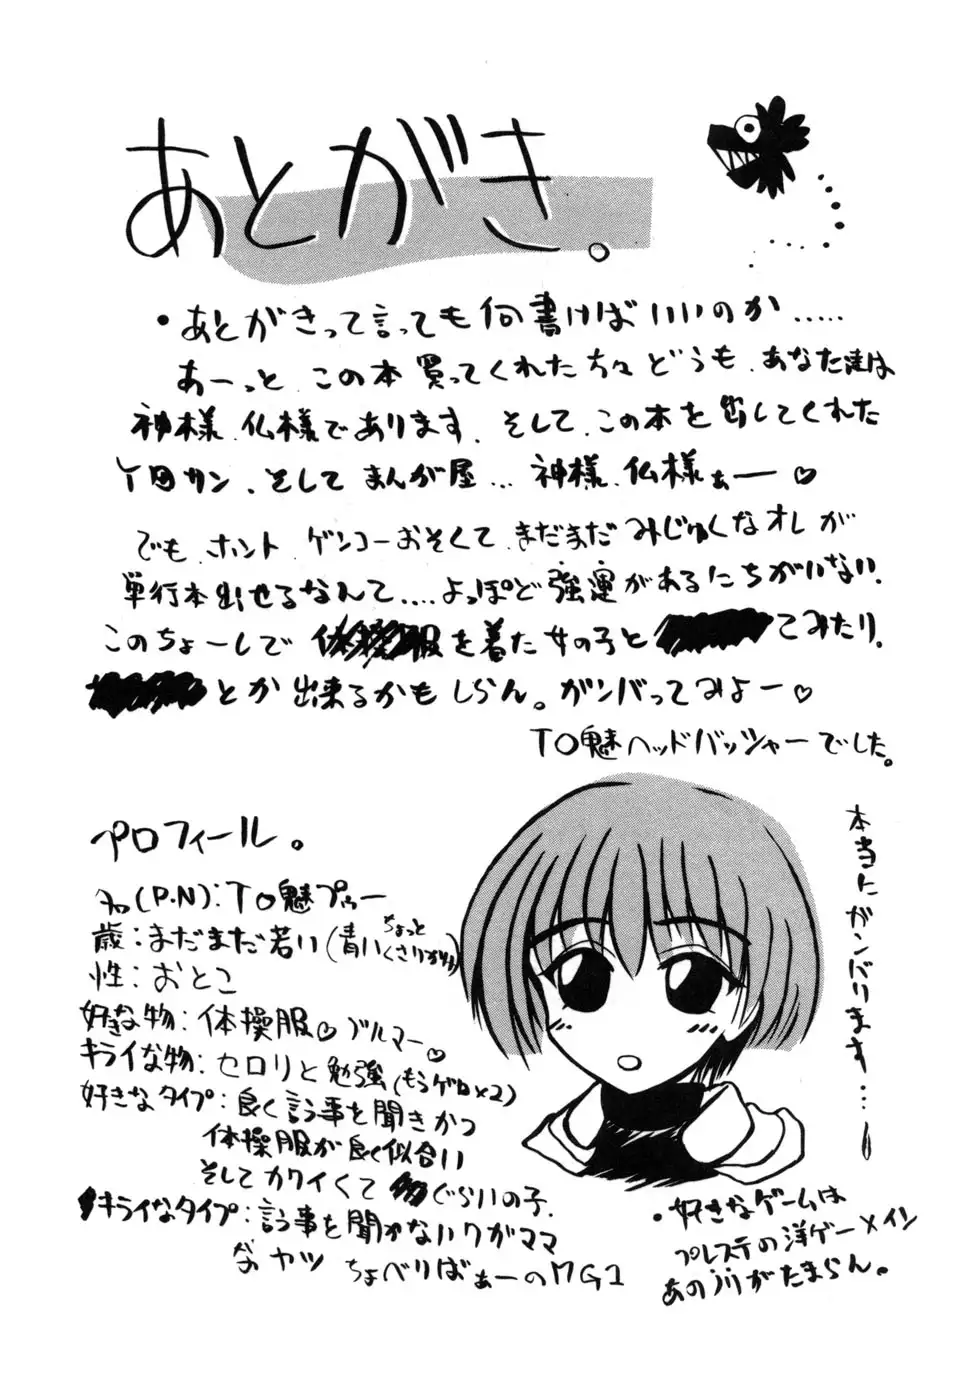 あとがき。
・あとがきって言っても何書けばいいのか.....
あーっと、この本買ってくれた方々どうも、あなた達は
神様、仏様であります、そして、この本を出してくれた
カン、そしてまんが屋...神様、仏様ぁー♡
でも、ホント ゲンコーおそくて、まだまだみじゅくなオレが
単行本出せるなんて....よっぽど強運があるにちがいない、
このちょーしで 体操服を着た女の子と てみたり、
とか出来るかもしらん。ガンバってみよー♡
TO魅ヘッドバッシャーでした。
本当にガンバります...
プロフィール。
名(P.N):TO魅プゥー
歳:まだまだ若い(青いちょっとくさりかけ)
性:おとこ
好きな物:体操服♡ブルマー♡
キライな物:セロリと勉強(もうゲロ×2)
好きなタイプ:良く言う事を聞きかつ
体操服が良く似合い
そしてカワイくて ぐらいの子.
キライなタイプ:言う事を聞かないワガママ
なヤツ ちょべりばぁーの
・好きなゲームは
プレステの洋ゲーメイン
あのノリがたまらん。